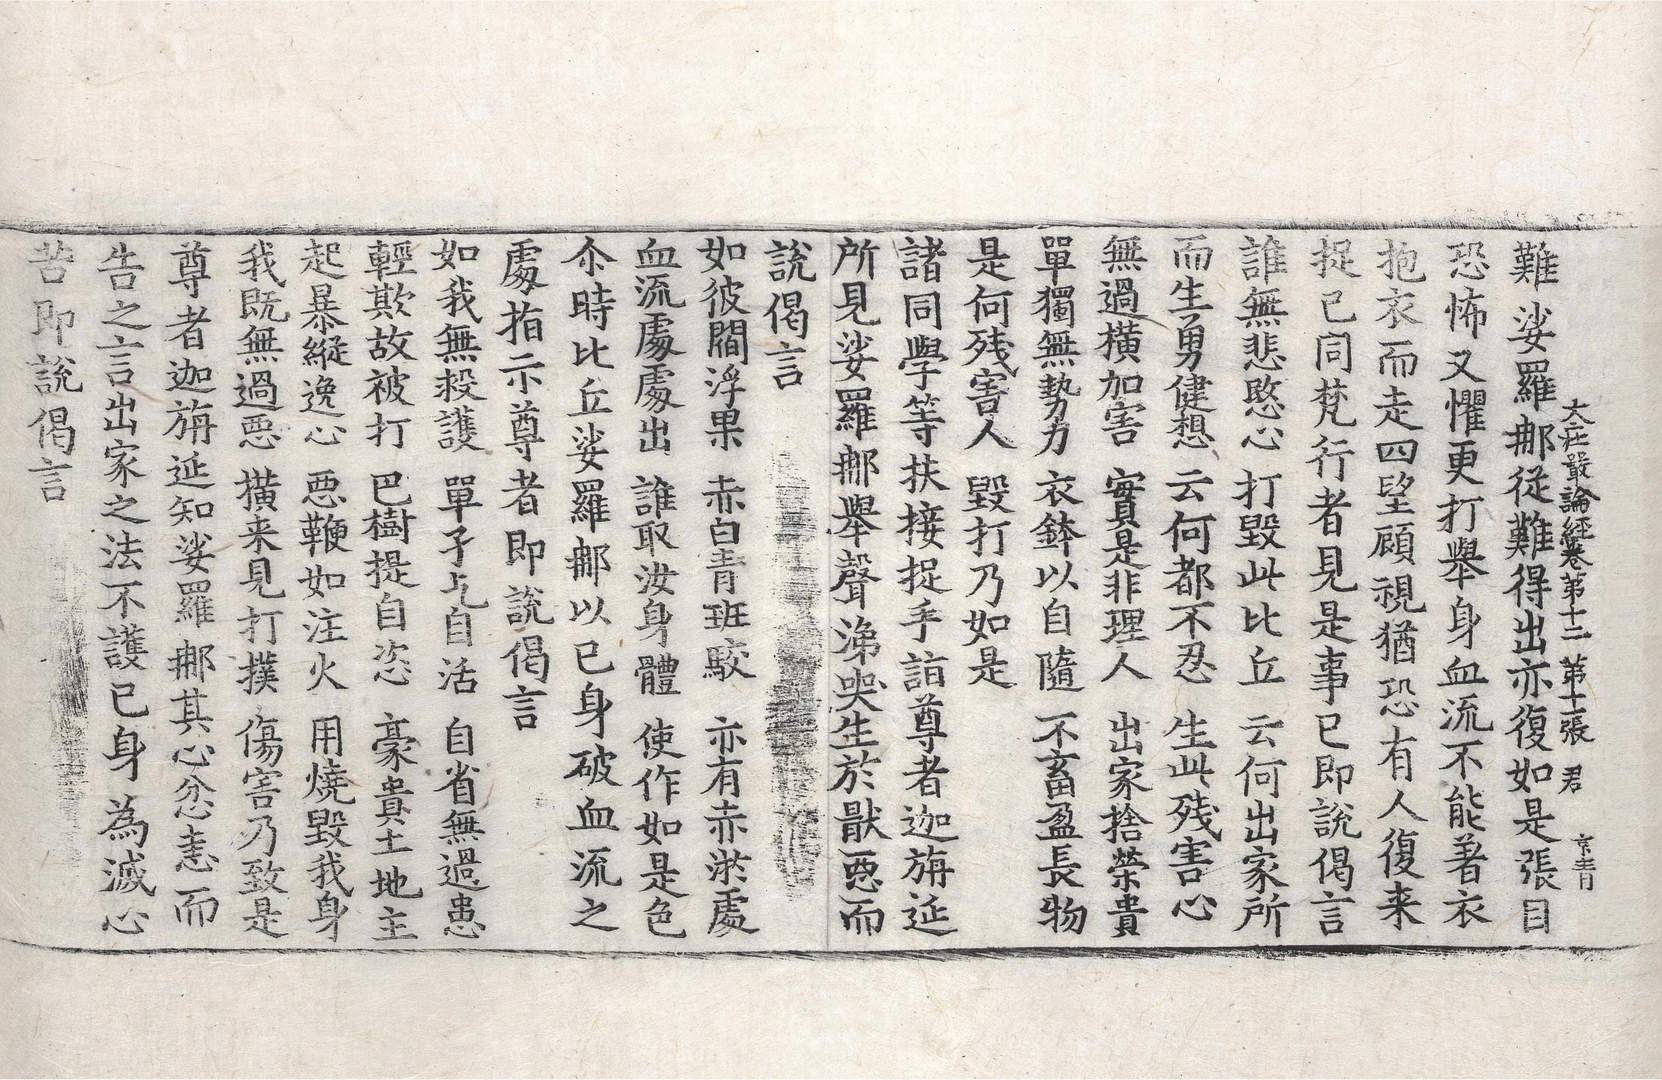 大莊嚴論經卷第十二 第十一張 君
難娑羅那從難得出亦復如是張目
恐怖又懼更打舉身血流不能著衣
抱衣而走四望顧視猶恐有人復来
捉已同梵行者見是事已即說偈言
誰無悲愍心 打毀此比丘 云何出家所
而生勇健想 云何都不忍 生此残害心
無過橫加害 實是非理人 出家捨榮貴
單獨無勢力 衣鉢以自隨 不畜盈長物
是何残害人 毀打乃如是
諸同學等扶接捉手詣尊者迦旃延
所見娑羅那舉聲涕哭生於猒惡而
說偈言
如彼閻浮果 赤白青班駮 亦有赤淤處
血流處處出 誰取汝身體 使作如是色
尒時比丘娑羅那以已身破血流之
處指示尊者即說偈言
如我無救護 單孑乞自活 自省無過患
輕欺故被打 巴樹提自恣 豪貴土地主
起暴縱逸心 惡鞭如注火 用燒毀我身
我既無過惡 橫来見打撲 傷害乃致是
尊者迦旃延知娑羅那其心忿恚而
告之言出家之法不護已身為滅心
苦即說偈言